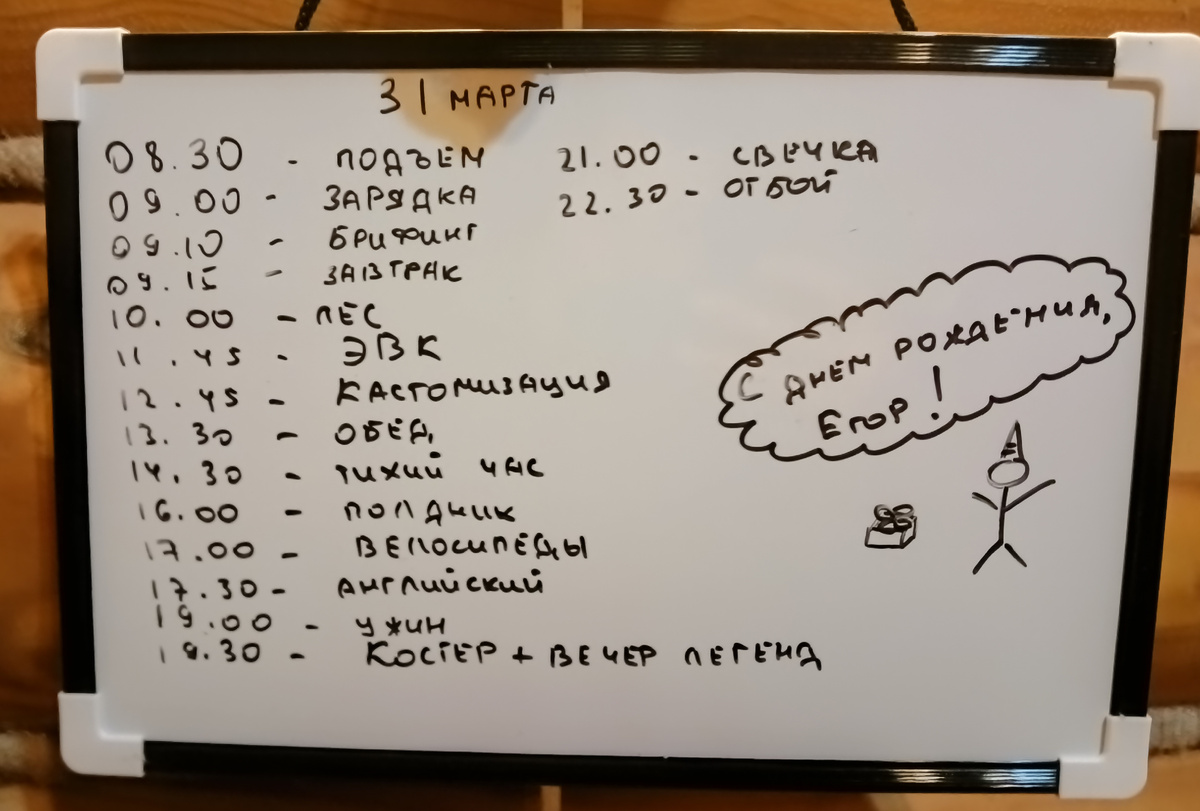 31 МАРТА
08.30 - ПОДЪЕМ
09.00 - ЗАРЯДКА
09.10 - БРИФИНГ
09.15 - ЗАВТРАК
10.00 - ЛЕС
11.45 - ЭВК
12.45 - КАСТОМИЗАЦИЯ
13.30 - ОБЕД
14.30 - ТИХИЙ ЧАС
16.00 - ПОЛДНИК
17.00 - ВЕЛОСИПЕДЫ
17.30 - АНГЛИЙСКИЙ
19.00 - УЖИН
19.30 - КОСТЕР + ВЕЧЕР ЛЕГЕНД
21.00 - СВЕЧКА
22.30 - ОТБОЙ
С ДНЕМ РОЖДЕНИЯ,
ЕГОР!